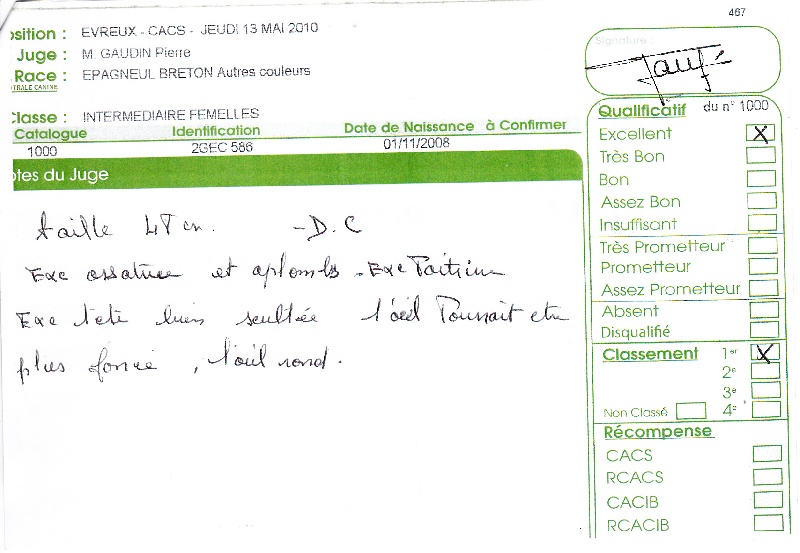 467
osition : EVREUX - CACS - JEUDI 13 MAI 2010
Juge : M. GAUDIN Pierre
Race : EPAGNEUL BRETON Autres couleurs
TRALE CANINE
Classe : INTERMEDIAIRE FEMELLES
Catalogue Identification Date de Naissance à Confirmer
1000 2GEC 586 01/11/2008
otes du Juge
taille 47 cm. - D.C
Exc ossature et aplombs - Exc Poitrine
Exc tete bien scultée l'oeil Pourrait etre
plus foncé, l'oeil rond.
Signature
Qualificatif du n° 1000
Excellent X
Très Bon
Bon
Assez Bon
Insuffisant
Très Prometteur
Prometteur
Assez Prometteur
Absent
Disqualifié
Classement 1er X
2e
3e
Non Classé 4e
Récompense
CACS
RCACS
CACIB
RCACIB